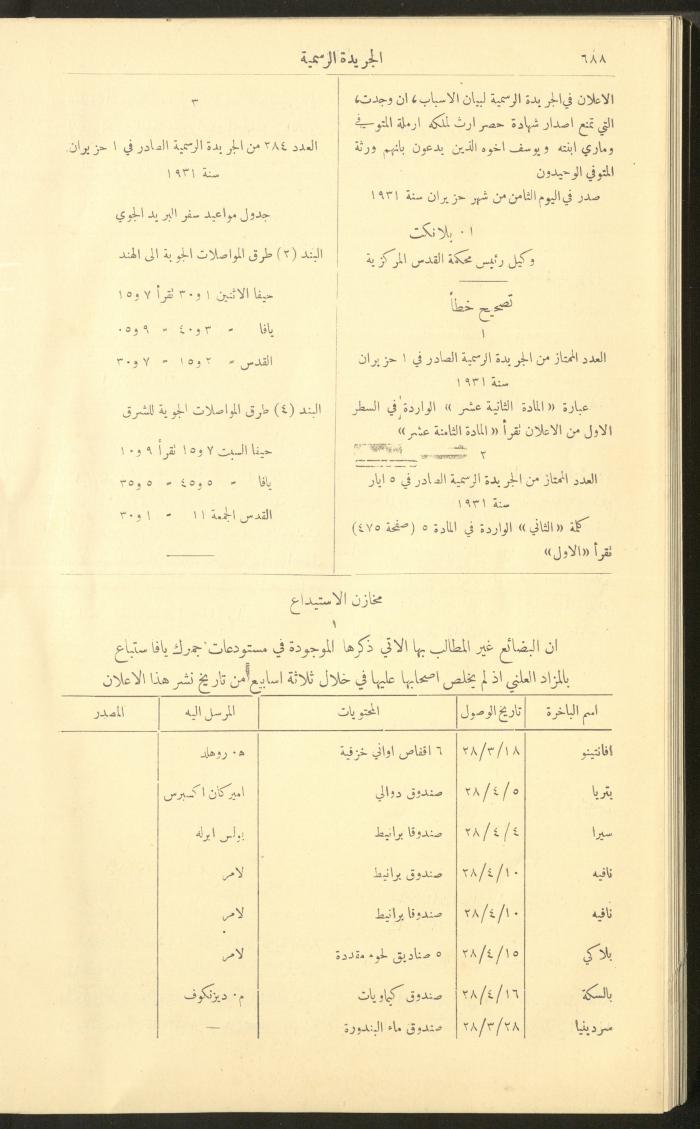 ٦٨٨
الجريدة الرسمية
الاعلان في الجريدة الرسمية لبيان الاسباب، ان وجدت،
التي تمنع اصدار شهادة حصر ارث لملكه ارملة المتوفي
وماري ابنته ويوسف اخوه الذين يدعون بانهم ورثة
المتوفي الوحيدون
صدر في اليوم الثامن من شهر حزيران سنة ١٩٣١
ا. بلانكت
وكيل رئيس محكمة القدس المركزية
تصحيح خطأ
١
العدد الممتاز من الجريدة الرسمية الصادر في ١ حزيران
سنة ١٩٣١
عبارة «المادة الثانية عشر» الواردة في السطر
الاول من الاعلان تقرأ «المادة الثامنة عشر»
٢
العدد الممتاز من الجريدة الرسمية الصادر في ٥ ايار
سنة ١٩٣١
كلمة «الثاني» الواردة في المادة ٥ (صفحة ٤٧٥)
تقرأ «الاول»
٣
العدد ٢٨٤ من الجريدة الرسمية الصادر في ١ حزيران
سنة ١٩٣١
جدول مواعيد سفر البريد الجوي
البند (٢) طرق المواصلات الجوية الى الهند
حيفا الاثنين ١ و٣٠ تقرأ ٧ و١٥
يافا " ٣ و٤٠ " ٩ و٠٥
القدس " ٢ و١٥ " ٧ و٣٠
البند (٤) طرق المواصلات الجوية للشرق
حيفا السبت ٧ و١٥ تقرأ ٩ و١٠
يافا " ٥ و٤٥ " ٥ و٣٥
القدس الجمعة ١١ " ١ و٣٠
مخازن الاستيداع
١
ان البضائع غير المطالب بها الاتي ذكرها الموجودة في مستودعات جمرك يافا ستباع
بالمزاد العلني اذ لم يخلص اصحابها عليها في خلال ثلاثة اسابيع من تاريخ نشر هذا الاعلان
اسم الباخرة تاريخ الوصول المحتويات المرسل اليه المصدر
افانتينو ٢٨/٣/١٨ ٦ اقفاص اواني خزفية ه. روهلد
بتريا ٢٨/٤/٥ صندوق دوالي اميركان اكسبرس
سيرا ٢٨/٤/٤ صندوقا برانيط بولس ابرله
نافيه ٢٨/٤/١٠ صندوق برانيط لامر
نافيه ٢٨/٤/١٠ صندوقا برانيط لامر
بلاكي ٢٨/٤/١٥ ٥ صناديق لحوم مقددة لامر
بالسكة ٢٨/٤/١٦ صندوق كيماويات م. ديزنكوف
سردينيا ٢٨/٣/٢٨ صندوق ماء البندورة —